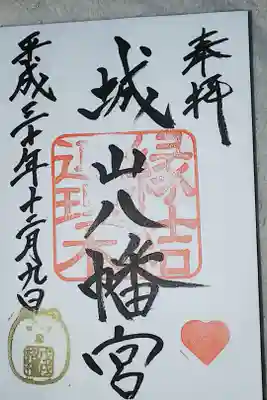 奉拝
城山八幡宮
平成三十年十二月九日